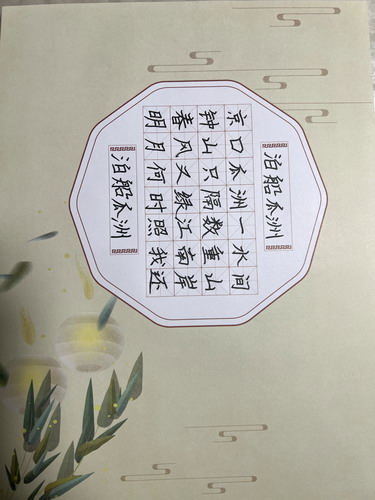 泊船瓜洲
京口瓜洲一水间
钟山只隔数重山
春风又绿江南岸
明月何时照我还
泊船瓜洲